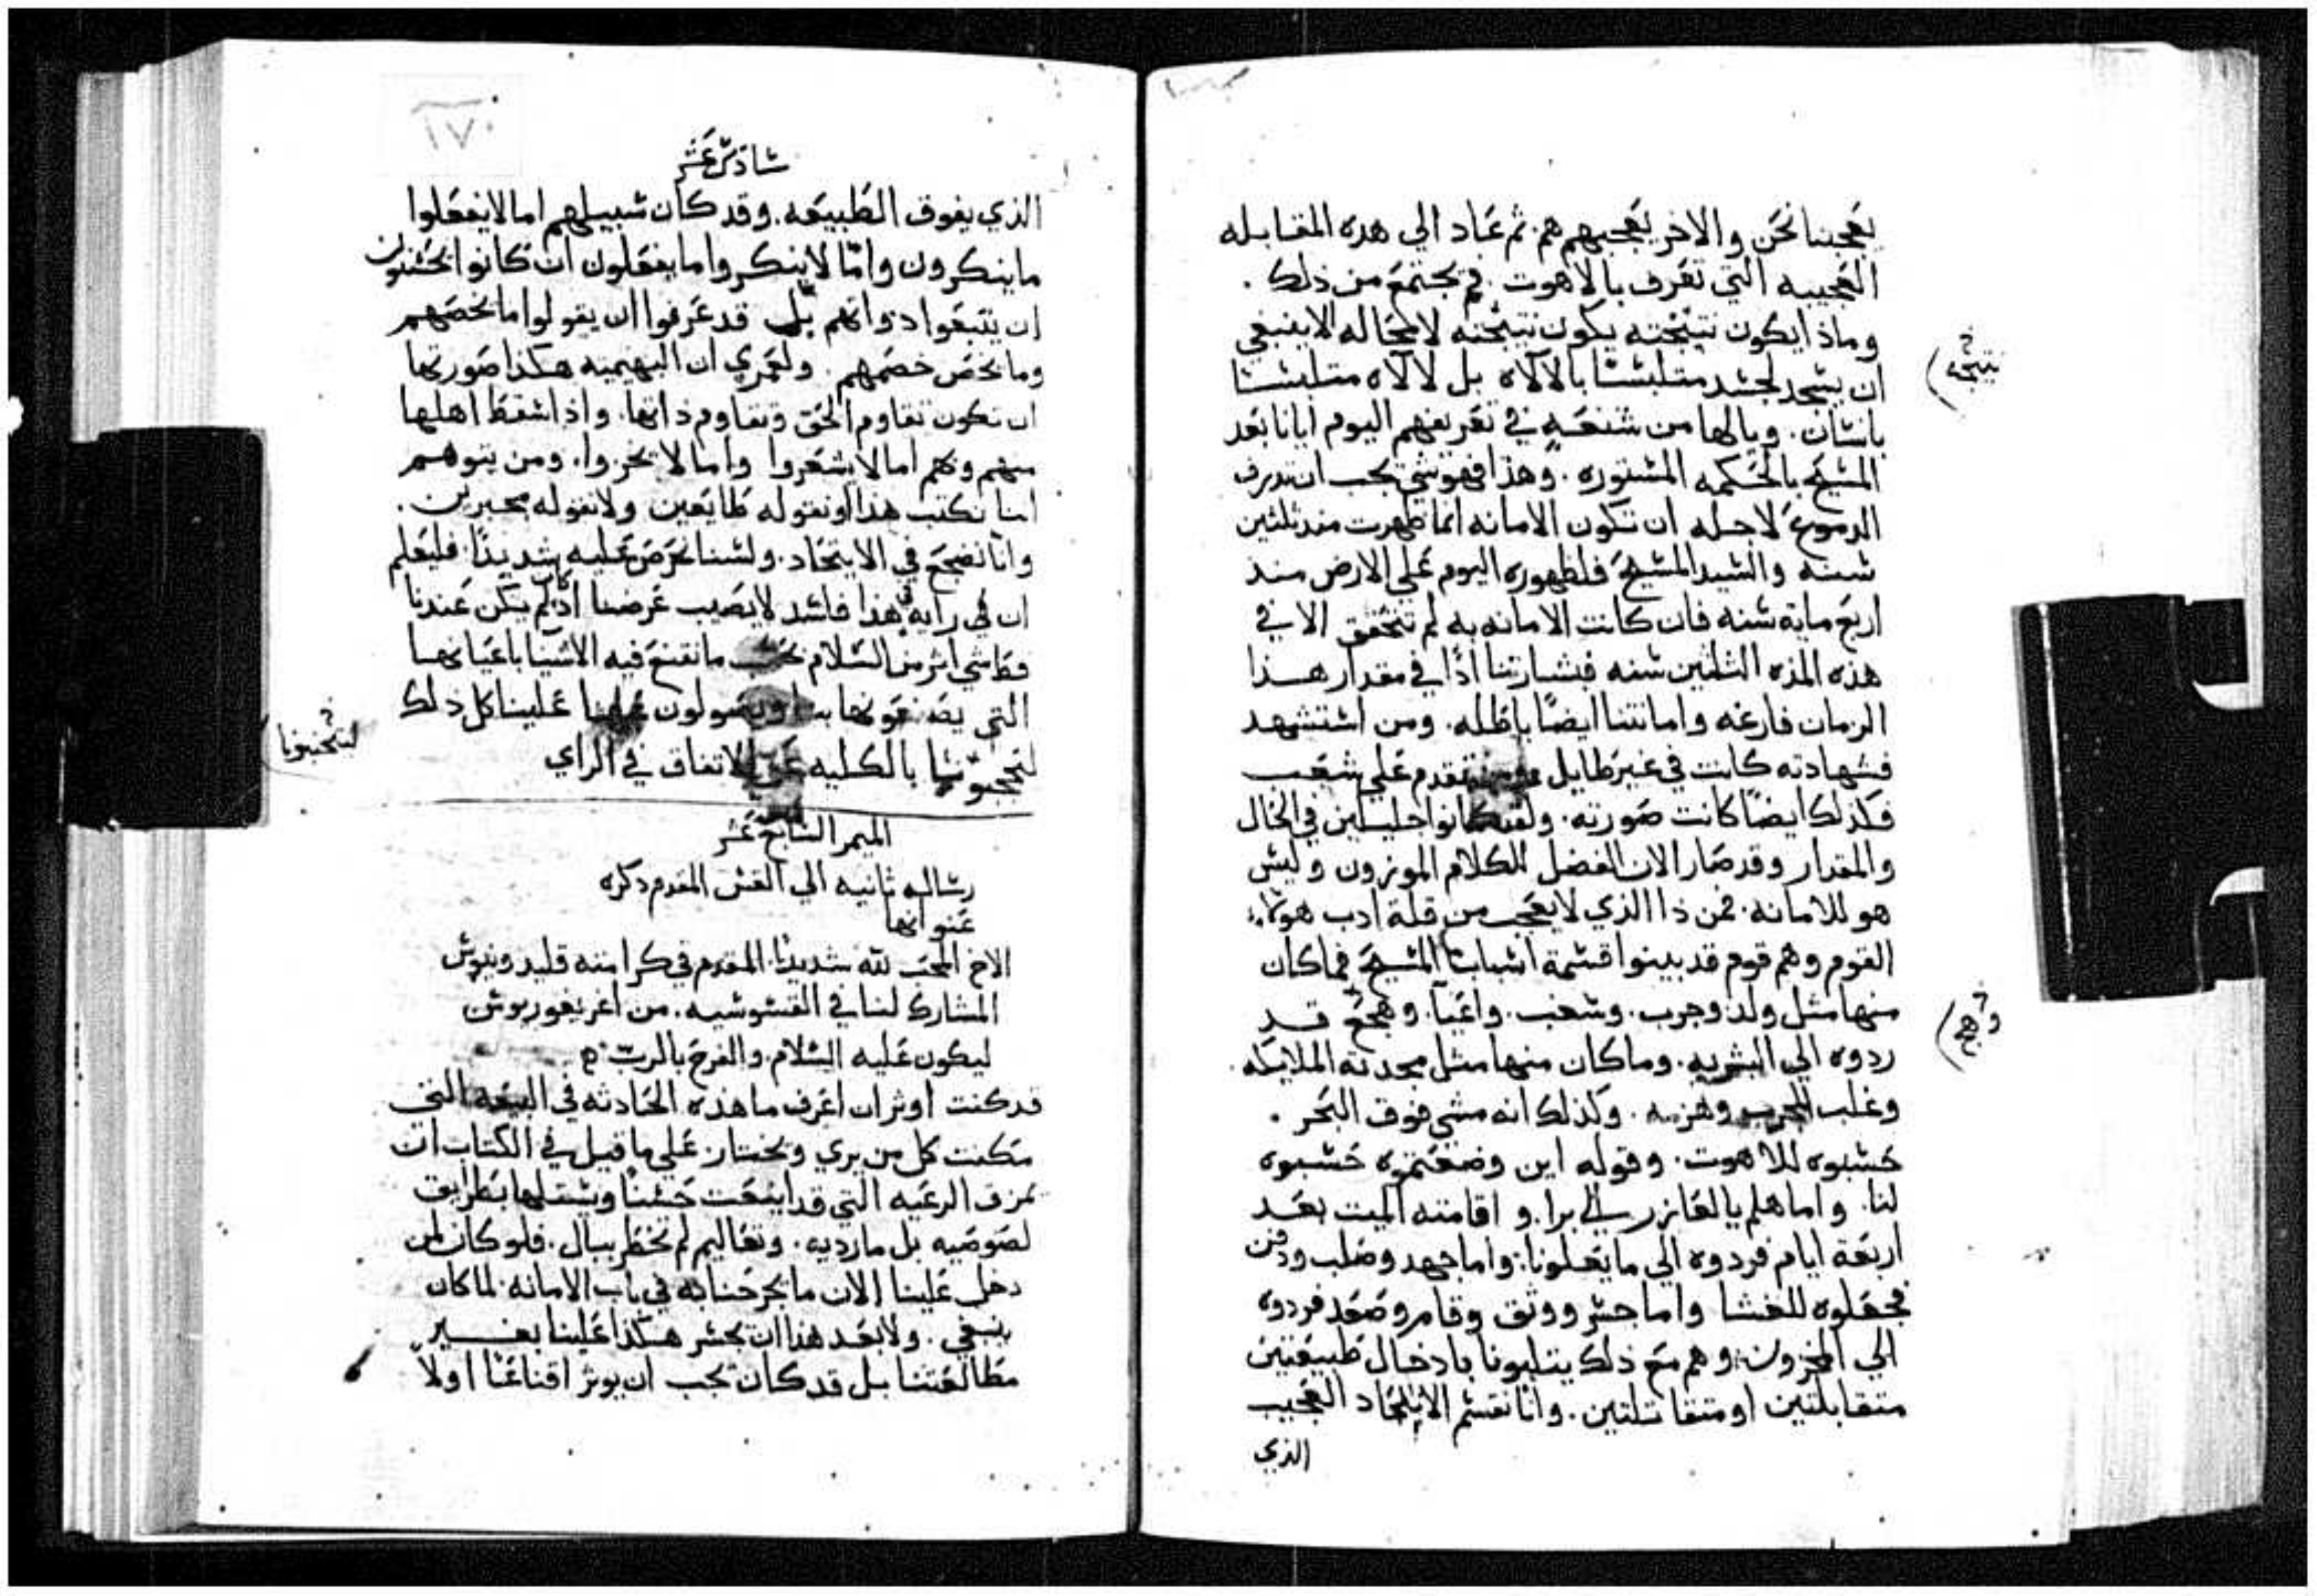 يعجبنا نحن والاخر يعجبهم هم. ثم عاد الي هده المقابله
العجيبه التي تعرف بالاهوت. فيجتمع من ذلك.
وماذا يكون نتيجته يكون نتيجته لا محاله الا ينبغي
نتيجة
ان يسجد لجسد متلبسا بالآلاه بل لآلاه متلبسا
بانسان. ويالها من شنعه في تعريفهم اليوم ايانا بعد
المسيح بالحكمه المستوره. وهذا فهو شي يجب ان تدرف
الدموع لاجله ان تكون الامانه انما ظهرت مند ثلثين
سنه والسيد المسيح فلظهوره اليوم علي الارض مند
اربع ماية سنه فان كانت الامانه به لم تتحقق الا في
هذه المده الثلثين سنه فبشارتنا اذا في مقدار هذا
الزمان فارغه وامانتنا ايضا باطله. ومن استشهد
فشهادته كانت في غير طايل تقدم علي شعب
فكذلك ايضا كانت صورته. ولقد كانوا جليلين في الحال
والمقدار وقد صار الان الفضل للكلام الموزون وليس
هو للامانه. فمن ذا الذي لا يعجب من قلة ادب هولاء
القوم وهم قوم قد بينوا قسمة اسباب المسيح فما كان
منها مثل ولد وجرب. وسغب. واعيا. وهجع قد
وهجع
ردوه الي البشريه. وما كان منها مثل مجدته الملايكه.
وغلب المجرب وهزمه. وكذلك انه مشي فوق البحر.
حسبوه للاهوت. وقوله اين وضعتموه حسبوه
لنا. واما هلم يا لعازر الي برا. واقامته الميت بعد
اربعة ايام فردوه الي ما يعلونا. واما جهد وصلب ودفن
فجعلوه للغشا واما جسر ووثق وقام وصعد فردوه
الي المخزون. وهم مع ذلك يتلبونا بادخال طبيعتين
متقابلتين او متقاتلتين. وانا نقسم الاتحاد العجيب
الذي
١٧٠
سادس عشر
الذي يفوق الطبيعه. وقد كان سبيلهم اما لا يفعلوا
ما ينكرون واما لا ينكروا ما يفعلون ان كانوا يحسنون
ان يتبعوا دواتهم بل قد عرفوا ان يقولوا ما يخصهم
وما يخص خصمهم. ولعمري ان البهيميه هكذا صورتها
ان تكون تقاوم الحق وتقاوم ذاتها. واذا اسقط اهلها
منهم وهم اما لا يشعروا واما لا يخزوا. ومن يتوهم
اننا نكتب هذا او نقوله طايعين ولا نقوله مجبرين.
وانا نضجع في الاتحاد. ولسنا نحرص عليه شديدا. فليعلم
ان في رايه هذا فاسد لا يصيب غرضنا اذ لم يكن عندنا
قط شي اثر من السلام نحسب ما تقنع فيه الاشيا باعيانها
التي يصنعونها بنا علينا كل ذلك
بالكليه عن الاتفاق في الراي
لتجنبونا
الميمر السابع عشر
رساله ثانيه الي القس المقدم دكره
عنوانها
الاخ المحب لله شديدا. المقدم في كرامته قليدونيوس
المشارك لنا في القسوسيه. من اغريغوريوس
ليكون عليه السلام. والفرح بالرب
قد كنت اوثر ان اعرف ما هذه الحادثه في البيعه التي
مكنت كل من يري ويختار. علي ما قيل في الكتاب ان
تمزق الرعيه التي قد اينعت حسنا ويستلها بطرايق
لصوصيه بل مارديه. وتعاليم لم تخطر ببال. فلو كان لمن
دخل علينا الان ما يجرحنا به في باب الامانه. لما كان
ينبغي. ولا بعد هذا ان يجسر هكذا علينا بغير
مطالعتنا بل قد كان يجب ان يوثر اقناعنا اولا